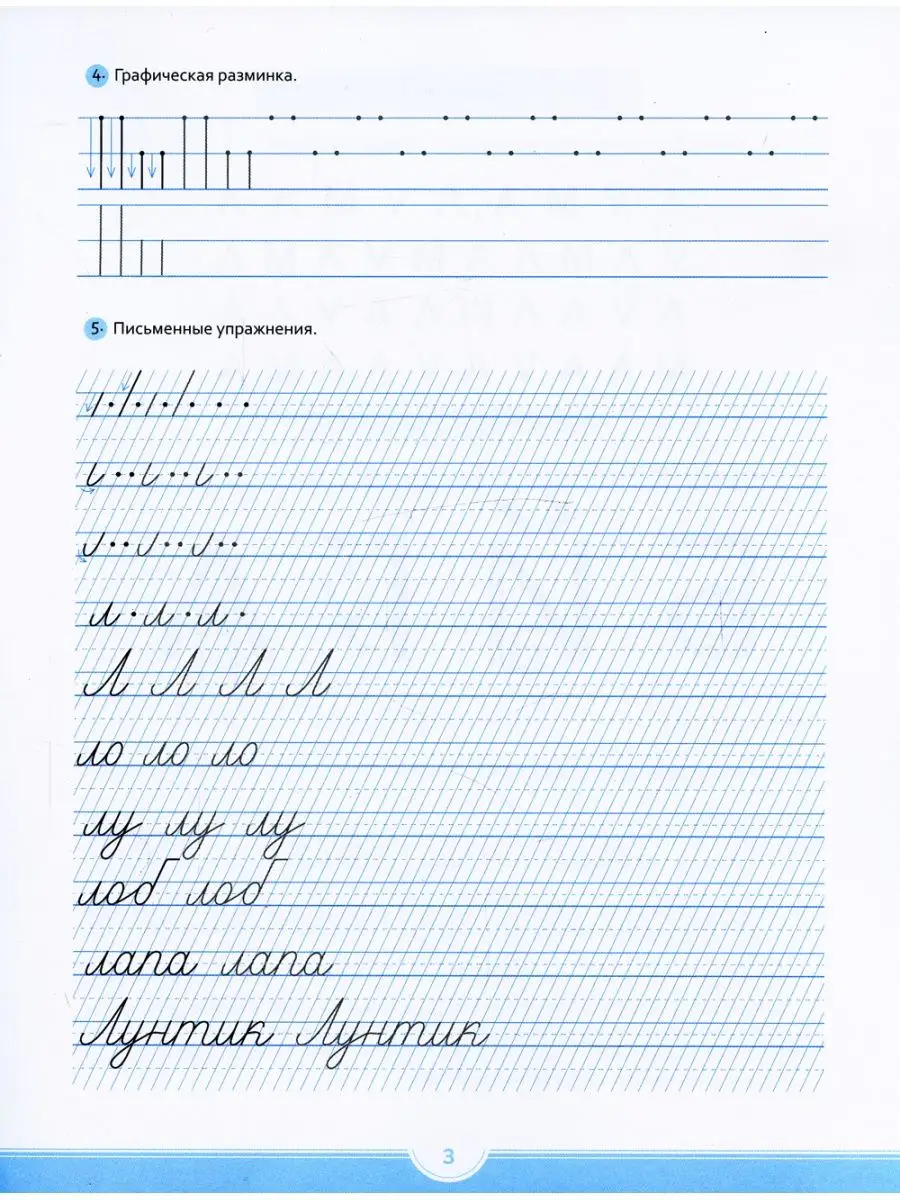 4. Графическая разминка.
5. Письменные упражнения.
л л л
Л Л Л Л
ло ло ло
лу лу лу
лоб лоб
лапа лапа
Лунтик Лунтик
3